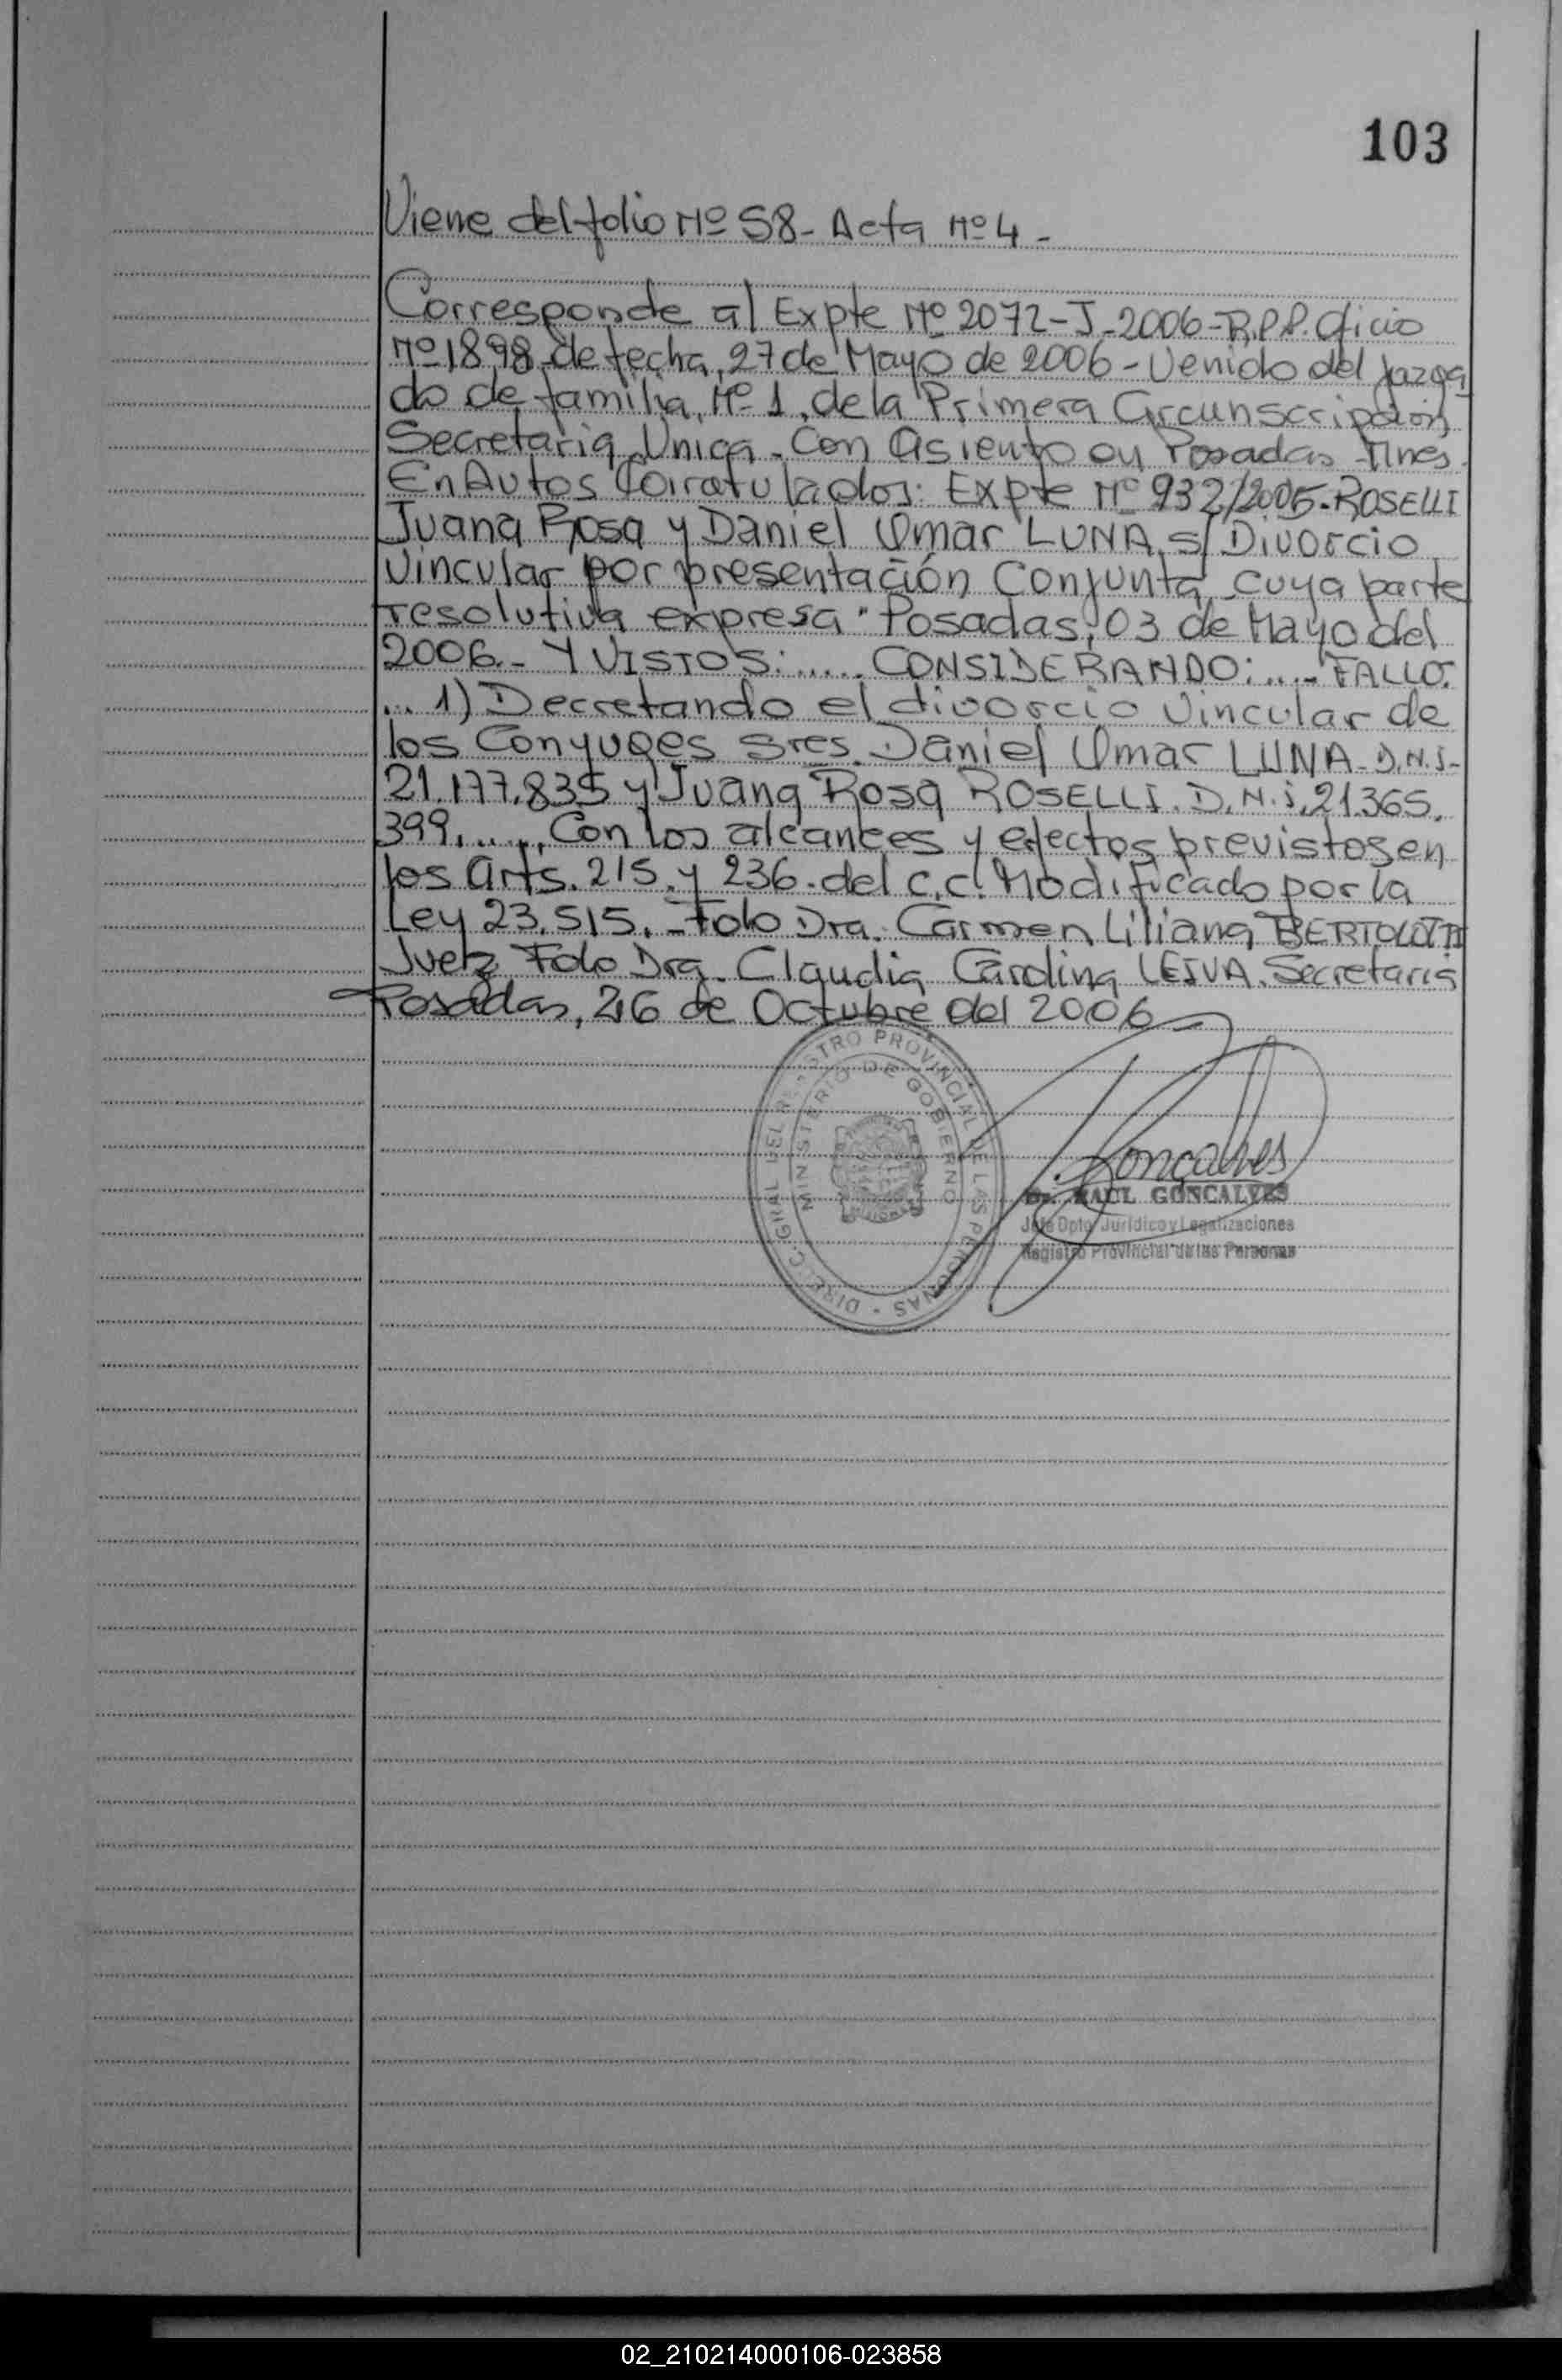 103
Viene del folio Nº 58- Acta Nº 4 -
Corresponde al Expte Nº 2072-J-2006-R.P.P. Oficio
Nº 1898 de fecha, 27 de Mayo de 2006 - Venido del Juzga
do de familia, Nº 1, de la Primera Circunscripción
Secretaria Unica - Con asiento en Posadas Mnes.
En Autos Caratulados: Expte Nº 932/2005-ROSELLI
Juana Rosa y Daniel Omar LUNA, s/ Divorcio
Vincular por presentación Conjunta, cuya parte
resolutiva expresa "Posadas, 03 de Mayo del
2006.- Y VISTOS: ..... CONSIDERANDO: .... FALLO:
... 1) Decretando el divorcio vincular de
los Conyuges Sres. Daniel Omar LUNA- D.N.I-
21.177.835 y Juana Rosa ROSELLI. D.N.I. 21.365.
399. .... Con los alcances y efectos previstos en
los arts. 215. y 236. del C.C. Modificado por la
Ley 23.515. - Fdo Dra. Carmen Liliana BERTOLOTTI
Juez Fdo Dra. Claudia Carolina LEIVA. Secretaria
Posadas, 26 de Octubre del 2006
DIREC. GRAL DEL REGISTRO PROVINCIAL DE LAS PERSONAS
MINISTERIO DE GOBIERNO
Goncalves
Dr. RAUL GONCALVES
Jefe Dpto Jurídico y Legalizaciones
Registro Provincial de las Personas
02_210214000106-023858